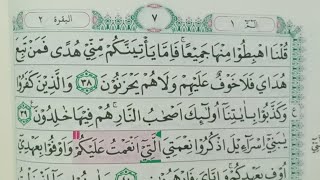 البقرة ٢ ٧ الٓمٓ ١
قُلْنَا اهْبِطُوْا مِنْهَا جَمِيْعًا فَاِمَّا يَاْتِيَنَّكُمْ مِّنِّيْ هُدًى فَمَنْ تَبِعَ
هُدَايَ فَلَا خَوْفٌ عَلَيْهِمْ وَلَا هُمْ يَحْزَنُوْنَ ٣٨ وَالَّذِيْنَ كَفَرُوْا
وَكَذَّبُوْا بِاٰيٰتِنَآ اُولٰٓئِكَ اَصْحٰبُ النَّارِ هُمْ فِيْهَا خٰلِدُوْنَ ٣٩
يٰبَنِيْٓ اِسْرَآءِيْلَ اذْكُرُوْا نِعْمَتِيَ الَّتِيْٓ اَنْعَمْتُ عَلَيْكُمْ وَاَوْفُوْا بِعَهْدِيْٓ
اُوْفِ بِعَهْدِكُمْ وَاِيَّايَ